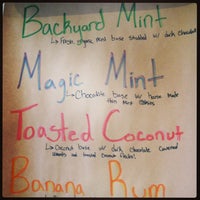 Backyard Mint
↳ Fresh organic mint base studded w/ dark chocolate
Magic Mint
↳ Chocolate base w/ house made
thin mint cookies
Toasted Coconut
↳ Coconut base w/ dark chocolate covered
almonds and toasted coconut flakes!
Banana Rum